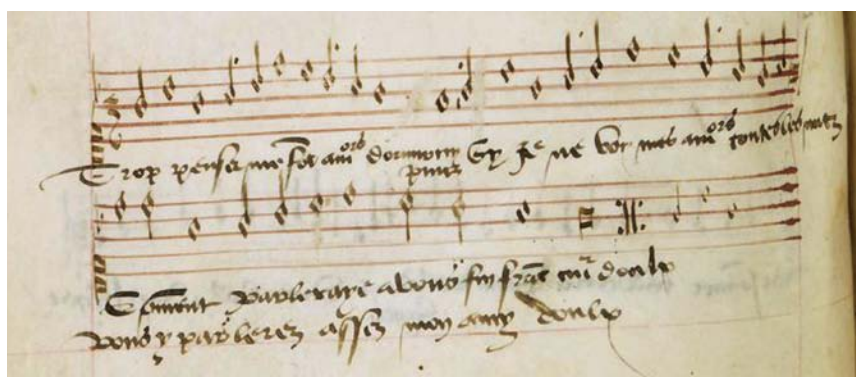 Trop penser me fōt amors dormir ne Sy Je ne voy mes amors toutes les nuitz
puis
Cōment parleraye a vous fin frāc cur doulx
Vous y parlerez assez mon amy doulx